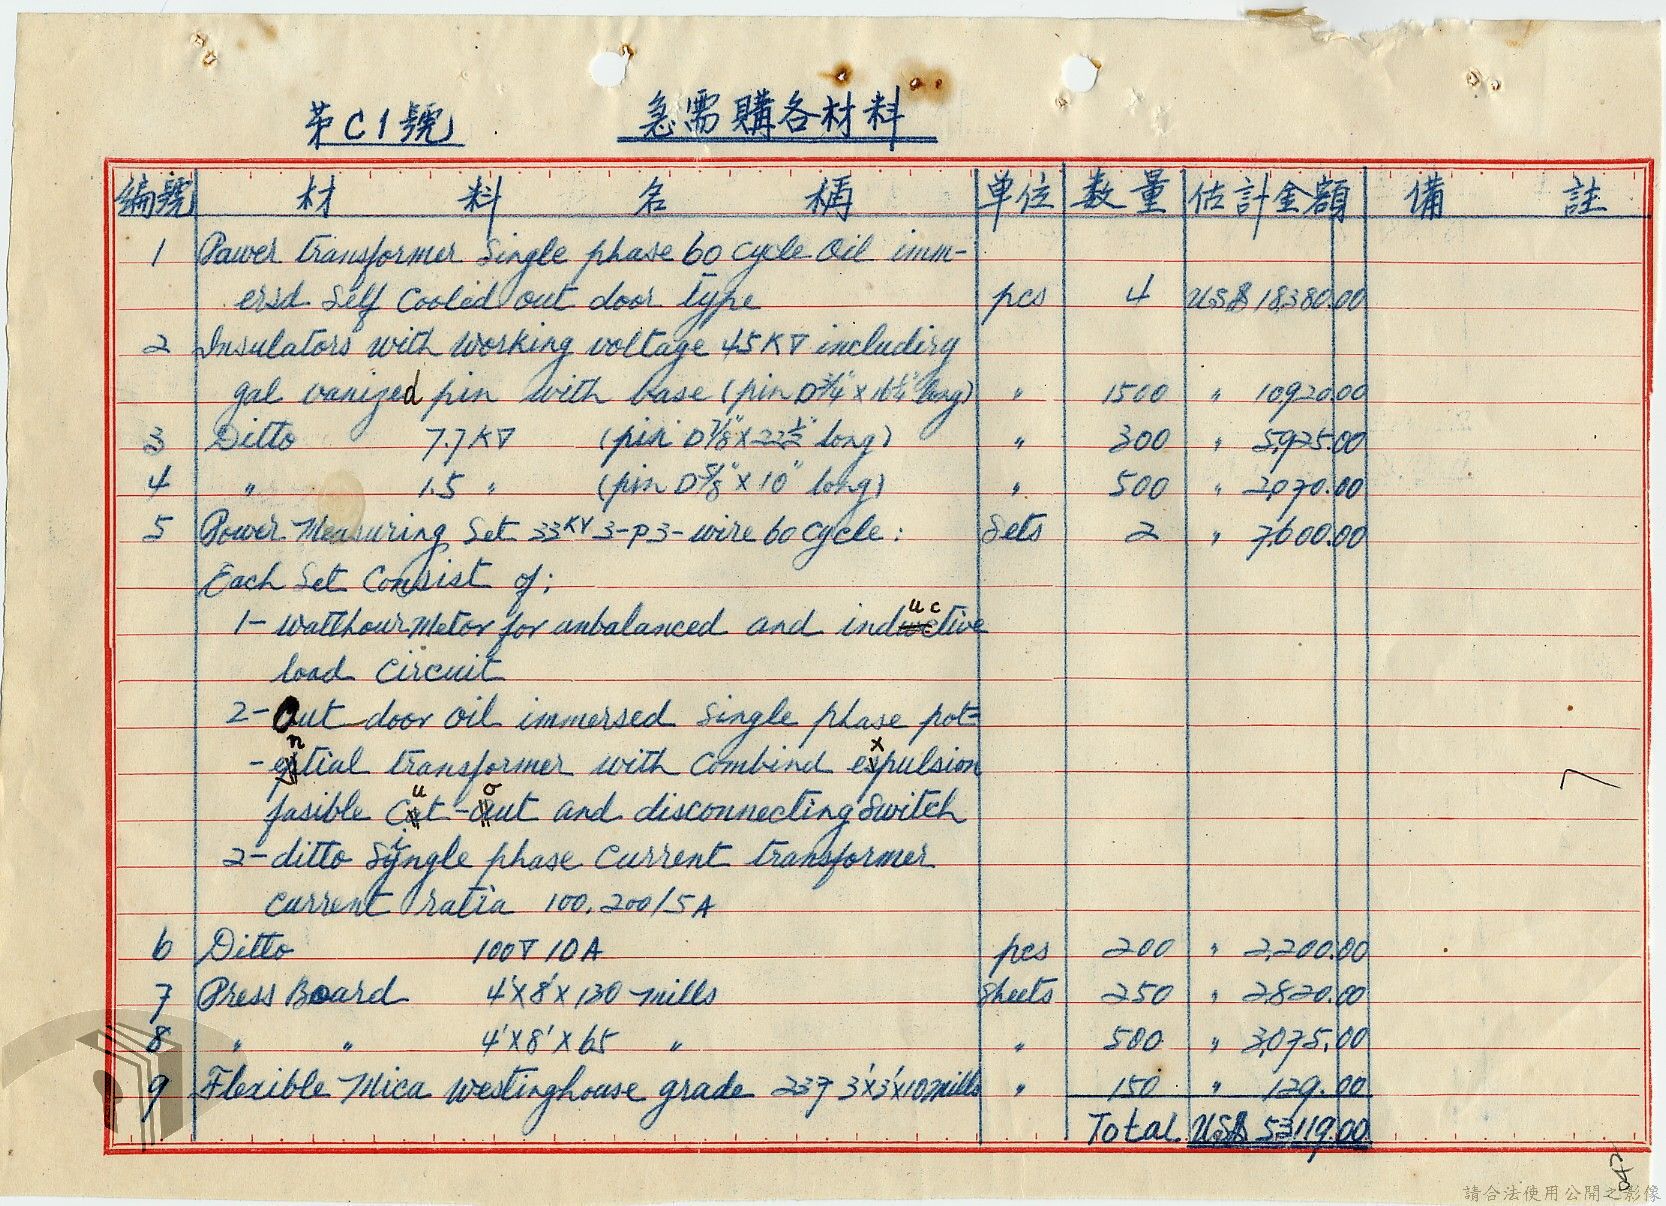 第C1號 急需購各材料
編號 材料名稱 单位 数量 估計金額 備註
1 Pawer transformer Single phase 60 cycle Oil imm-
ersd Self Cooled out door type pcs 4 US$ 18,380.00
2 Insulators with working voltage 45KV including
galvanized pin with base (pin D3/4" X 16 1/4" long) " 1500 " 10920.00
3 Ditto 7.7KV (pin D7/8" X 22 1/2" long) " 300 " 5,925.00
4 " 1.5 " (pin D5/8" X 10" long) " 500 " 2,070.00
5 Power Measuring Set 33KV 3-P 3-wire 60 cycle: Sets 2 " 7,600.00
Each Set Consist of:
1- watthour Metor for anbalanced and inductive
load circuit
2- Out door oil immersed Single phase pot=
-ential transformer with Combind expulsion
fasible Cut-out and disconnecting Switch
2- ditto Single phase Current transformer
Current ratia 100.200/5A
6 Ditto 100V 10A pcs 200 " 2,200.00
7 Press Board 4'X8'X130 mills Sheets 250 " 2,820.00
8 " " 4'X8'X65 " " 500 " 3,075.00
9 Flexible Mica Westinghouse grade 237 3'X3'X10 mills " 150 " 129.00
Total US$ 53119.00
請合法使用公開之影像